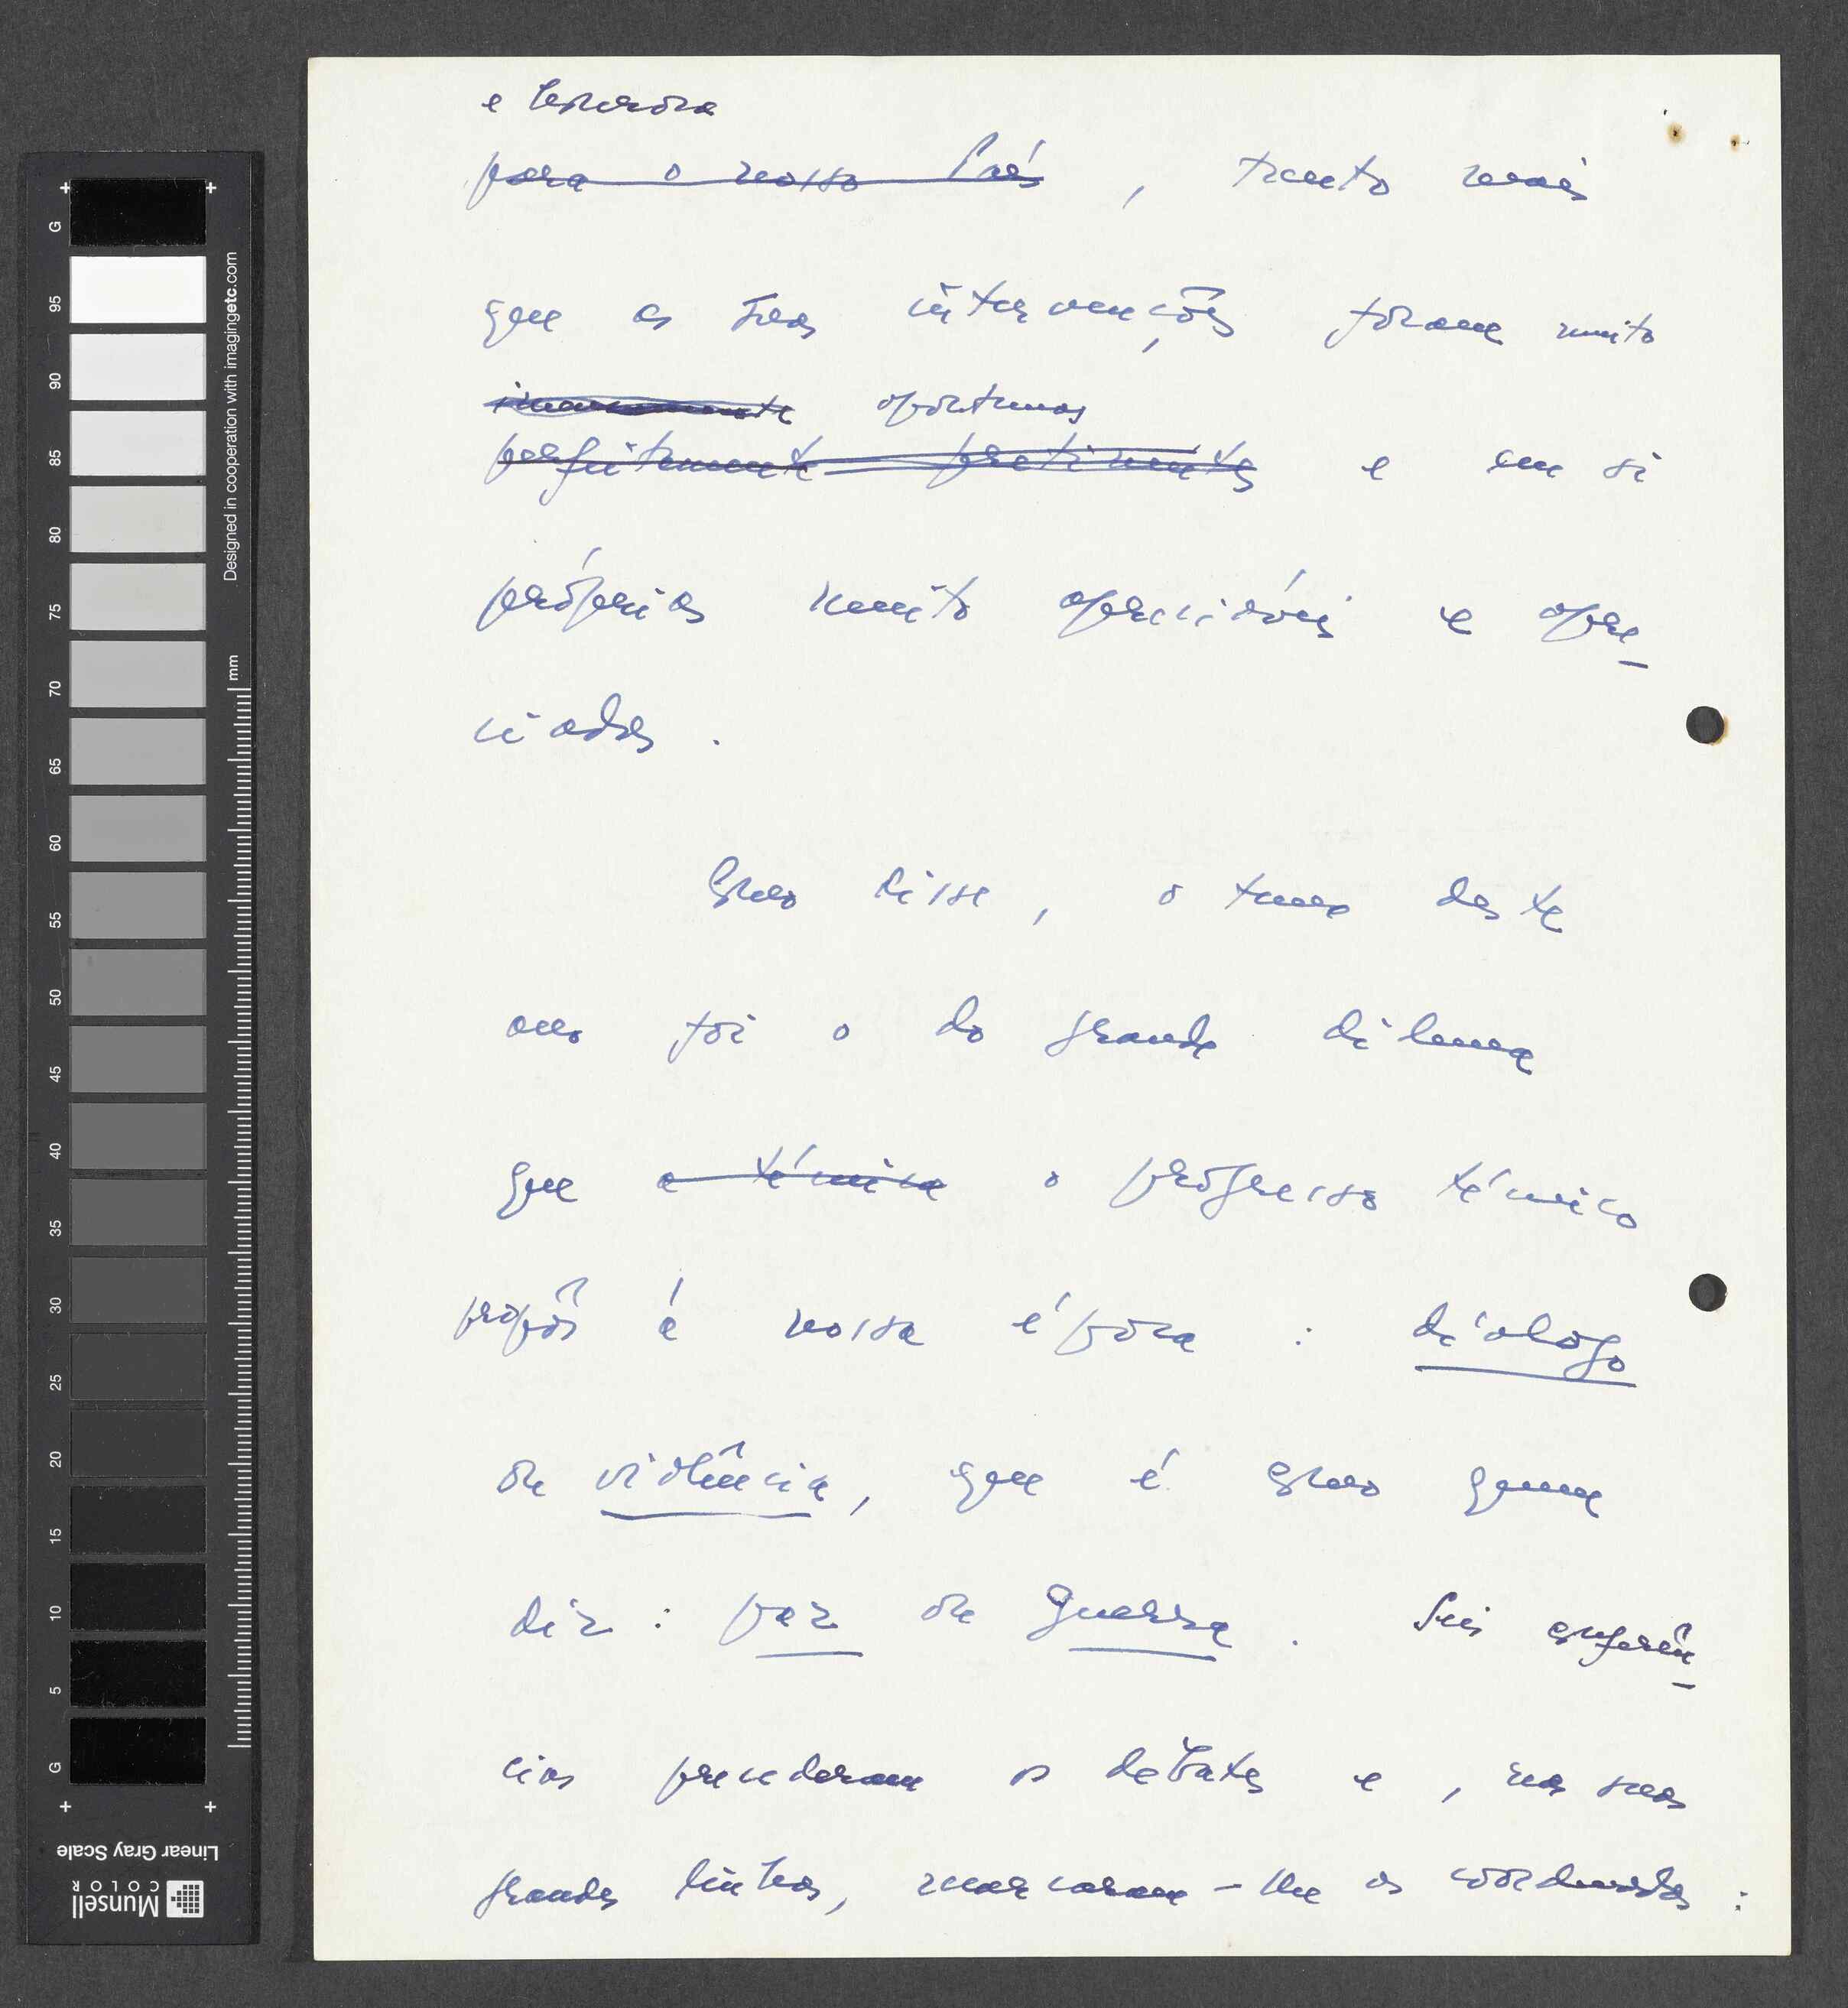 e
para o nosso País, tanto mais
que as suas intervenções foram muito
oportunas
perfeitamente pertinentes e em si
próprias muito apreciáveis e apre-
ciadas.
Como disse, o tema deste
ano foi o do grande dilema
que a técnica o progresso técnico
propôs à nossa época: diálogo
ou violência, que é como quem
diz: paz ou guerra. Seis conferên-
cias precederam os debates e, nas suas
grandes linhas, marcaram-lhe as coordenadas:
G
95
90
85
80
75
70
65
60
55
50
45
40
35
30
25
20
15
10
5
G
Designed in cooperation with imagingetc.com
mm
Linear Gray Scale
Munsell
COLOR